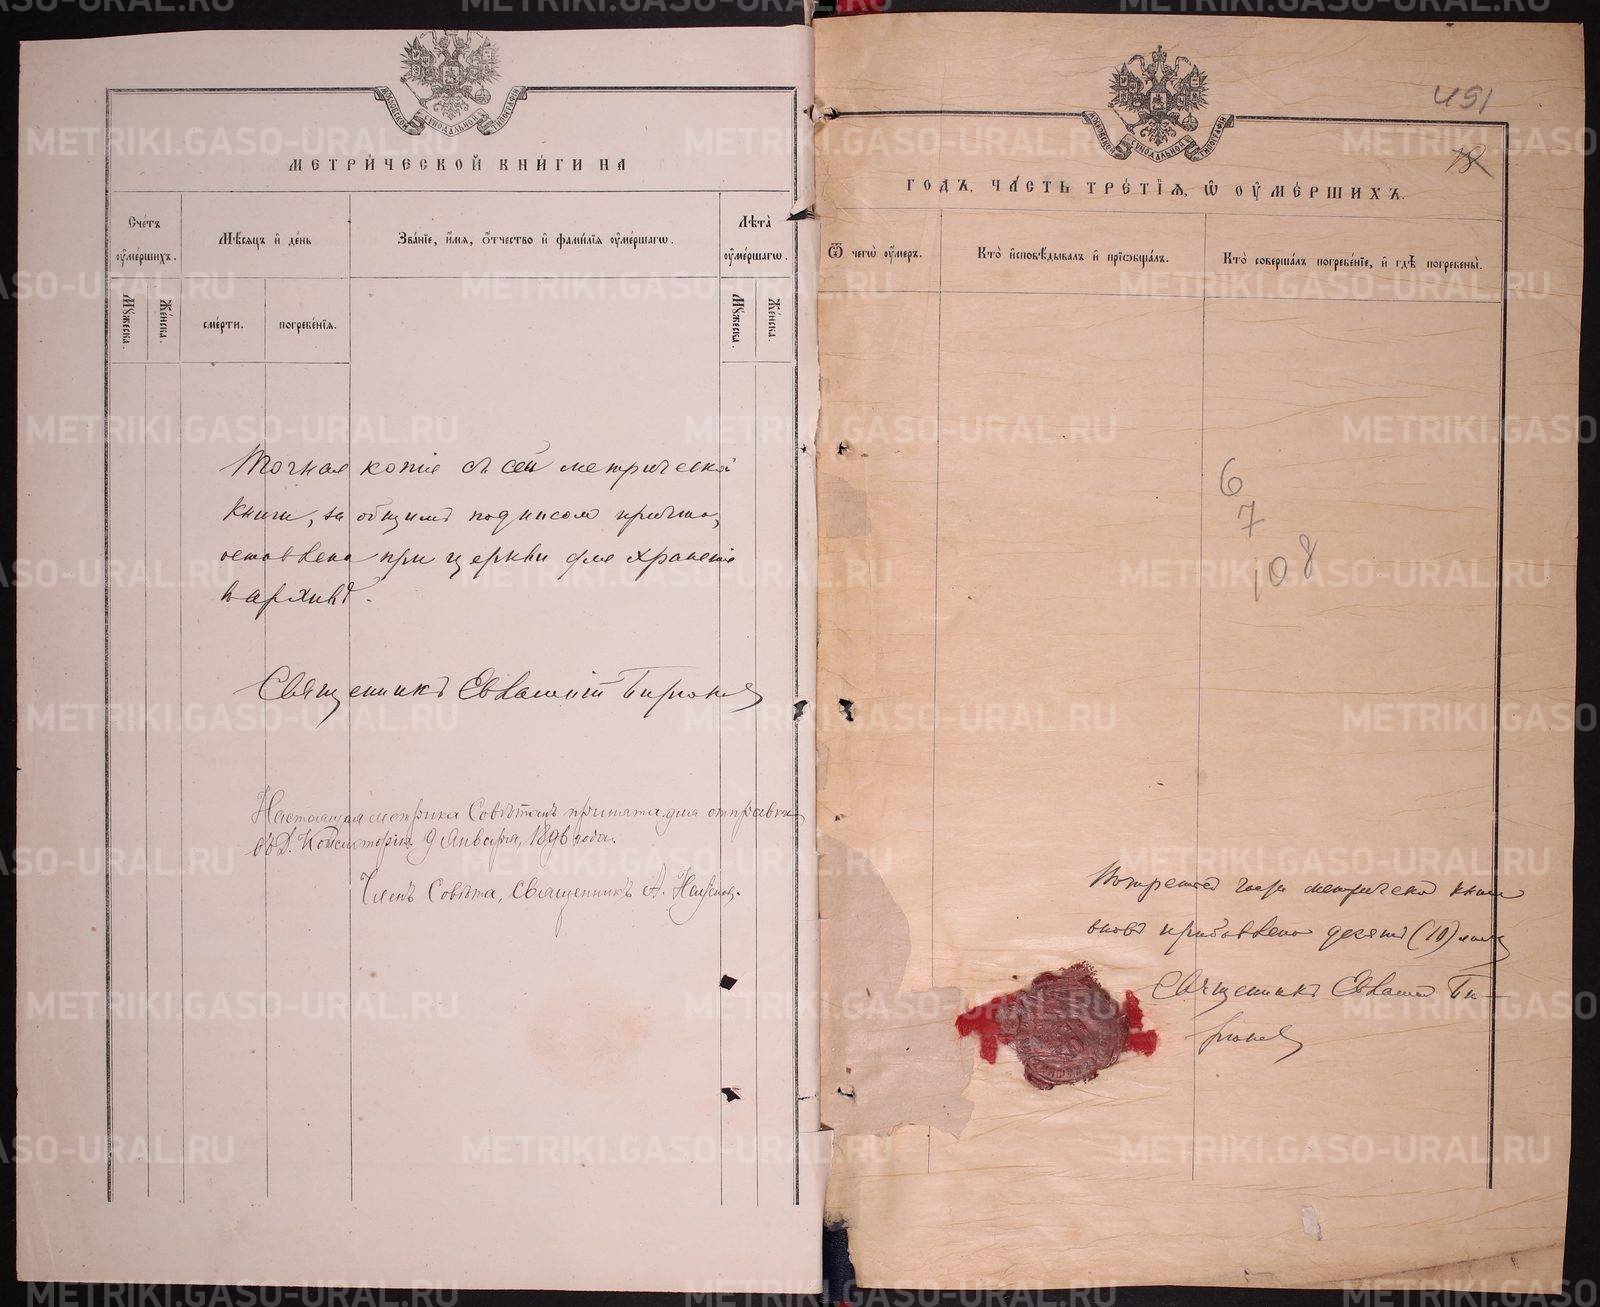 МОСКОВСКОЙ СУНОДАЛЬНОЙ ТИПОГРАФІИ
МЕТРИ́ЧЕСКОЙ КНИ́ГИ НА
Сче́тъ ᲂу҆ме́ршихъ.
Мѣ́сяцъ и҆ де́нь
Зва́нїе, и҆́мя, ѻ҆́тчество и҆ фами́лїя ᲂу҆ме́ршагѡ.
Лѣ́та ᲂу҆ме́ршагѡ.
Мꙋ́жеска.
Же́нска.
сме́рти.
погребе́нїя.
Мꙋ́жеска.
Же́нска.
Точная копія съ сей метрической
книги, за общимъ подписомъ причта,
оставлена при церкви для храненія
въ архивѣ.
Священникъ Евлампій Бирюковъ
Настоящая метрика Совѣтомъ принята для отправки
въ Д. Консисторію 9 Января, 1896 года.
Членъ Совѣта, Священникъ А.
МОСКОВСКОЙ СУНОДАЛЬНОЙ ТИПОГРАФІИ
491
78
ГО́ДЪ, ЧА́СТЬ ТРЕ́ТЇѦ, Ѡ҆ ОУ҆МЕ́РШИХЪ.
Ѿ чегѡ̀ ᲂу҆́меръ.
Кто̀ и҆сповѣ́дывалъ и҆ прїѡбща́лъ.
Кто̀ соверша́лъ погребе́нїе, и҆ гдѣ̀ погребены̀.
6
7
108
Въ третьей части метрической книги
вновь прибавлено десять (10) листовъ
Священникъ Евлампій Би-
рюковъ
METRIKI.GASO-URAL.RU